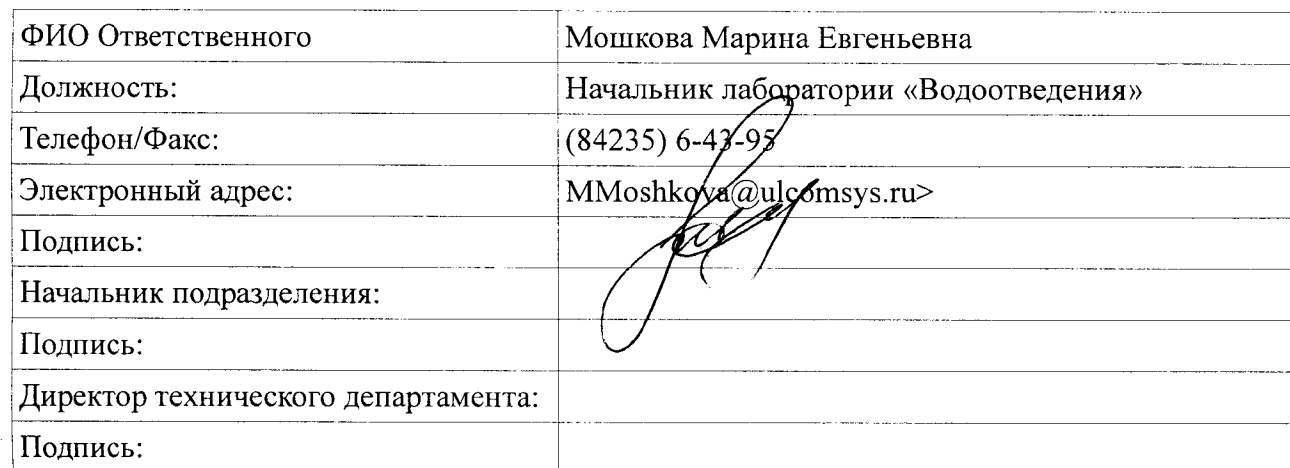 ФИО Ответственного Мошкова Марина Евгеньевна
Должность: Начальник лаборатории «Водоотведения»
Телефон/Факс: (84235) 6-43-95
Электронный адрес: MMoshkova@ulcomsys.ru>
Подпись:
Начальник подразделения:
Подпись:
Директор технического департамента:
Подпись: